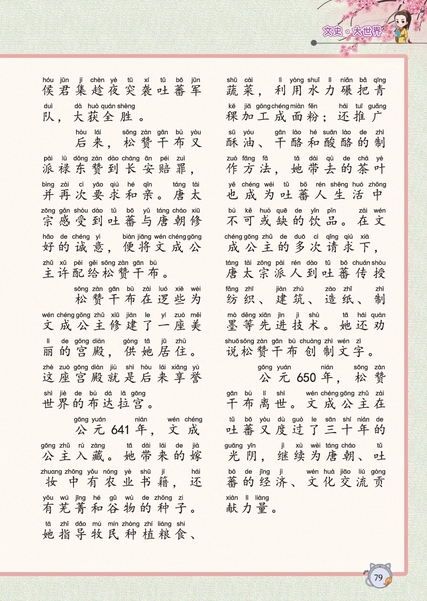 文史·大世界
hóu jūn jí chèn yè tū xí tǔ bō jūn
侯君集趁夜突袭吐蕃军
duì dà huò quán shèng
队，大获全胜。
hòu lái sōng zàn gān bù yòu
后来，松赞干布又
pài lù dōng zàn dào cháng ān péi zuì
派禄东赞到长安赔罪，
bìng zài cì yāo qiú hé qīn táng tài
并再次要求和亲。唐太
zōng gǎn shòu dào tǔ bō yǔ táng cháo xiū
宗感受到吐蕃与唐朝修
hǎo de chéng yì biàn jiāng wén chéng gōng
好的诚意，便将文成公
zhǔ xǔ pèi gěi sōng zàn gān bù
主许配给松赞干布。
sōng zàn gān bù zài luó xiē wèi
松赞干布在逻些为
wén chéng gōng zhǔ xiū jiàn le yí zuò měi
文成公主修建了一座美
lì de gōng diàn gōng tā jū zhù
丽的宫殿，供她居住。
zhè zuò gōng diàn jiù shì hòu lái xiǎng yù
这座宫殿就是后来享誉
shì jiè de bù dá lā gōng
世界的布达拉宫。
gōng yuán nián wén chéng
公元 641 年，文成
gōng zhǔ rù zàng tā dài lái de jià
公主入藏。她带来的嫁
zhuang zhōng yǒu nóng yè shū jí hái
妆中有农业书籍，还
yǒu wú jīng hé gǔ wù de zhǒng zi
有芜菁和谷物的种子。
tā zhǐ dǎo mù mín zhòng zhí liáng shi
她指导牧民种植粮食、
shū cài lì yòng shuǐ lì niǎn bǎ qīng
蔬菜，利用水力碾把青
kē jiā gōng chéng miàn fěn hái tuī guǎng
稞加工成面粉；还推广
sū yóu gān lào hé suān lào de zhì
酥油、干酪和酸酪的制
zuò fāng fǎ tā dài qù de chá yè
作方法，她带去的茶叶
yě chéng wéi tǔ bō rén shēng huó zhōng
也成为吐蕃人生活中
bù kě huò quē de yǐn pǐn zài wén
不可或缺的饮品。在文
chéng gōng zhǔ de duō cì qǐng qiú xià
成公主的多次请求下，
táng tài zōng pài rén dào tǔ bō chuán shòu
唐太宗派人到吐蕃传授
fǎng zhī jiàn zhù zào zhǐ zhì
纺织、建筑、造纸、制
mò děng xiān jìn jì shù tā hái quàn
墨等先进技术。她还劝
shuō sōng zàn gān bù chuàng zhì wén zì
说松赞干布创制文字。
gōng yuán nián sōng zàn
公元 650 年，松赞
gān bù lí shì wén chéng gōng zhǔ zài
干布离世。文成公主在
tǔ bō yòu dù guò le sān shí nián de
吐蕃又度过了三十年的
guāng yīn jì xù wèi táng cháo tǔ
光阴，继续为唐朝、吐
bō de jīng jì wén huà jiāo liú gòng
蕃的经济、文化交流贡
xiàn lì liàng
献力量。
79